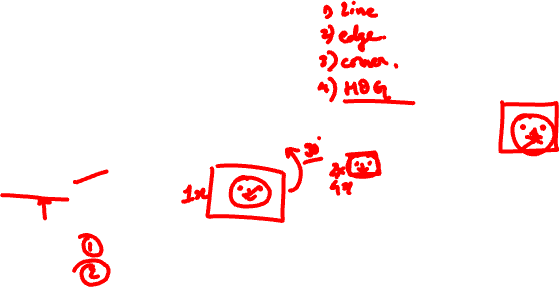 1) Line
2) edge.
3) corner.
4) HOG
30°
1x
2x
4x
1
2